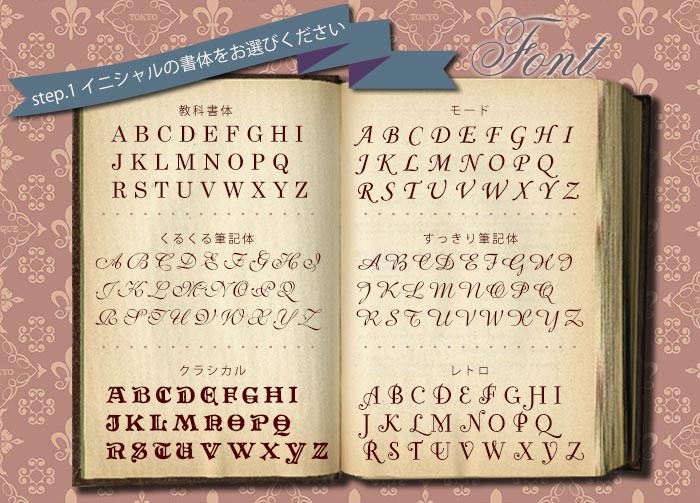 step.1 イニシャルの書体をお選びください
Font
教科書体
A B C D E F G H I
J K L M N O P Q
R S T U V W X Y Z
モード
A B C D E F G H I
J K L M N O P Q
R S T U V W X Y Z
くるくる筆記体
A B C D E F G H I
J K L M N O P Q
R S T U V W X Y Z
すっきり筆記体
A B C D E F G H I
J K L M N O P Q
R S T U V W X Y Z
クラシカル
A B C D E F G H I
J K L M N O P Q
R S T U V W X Y Z
レトロ
A B C D E F G H I
J K L M N O P Q
R S T U V W X Y Z
TOKYO
TOKYO